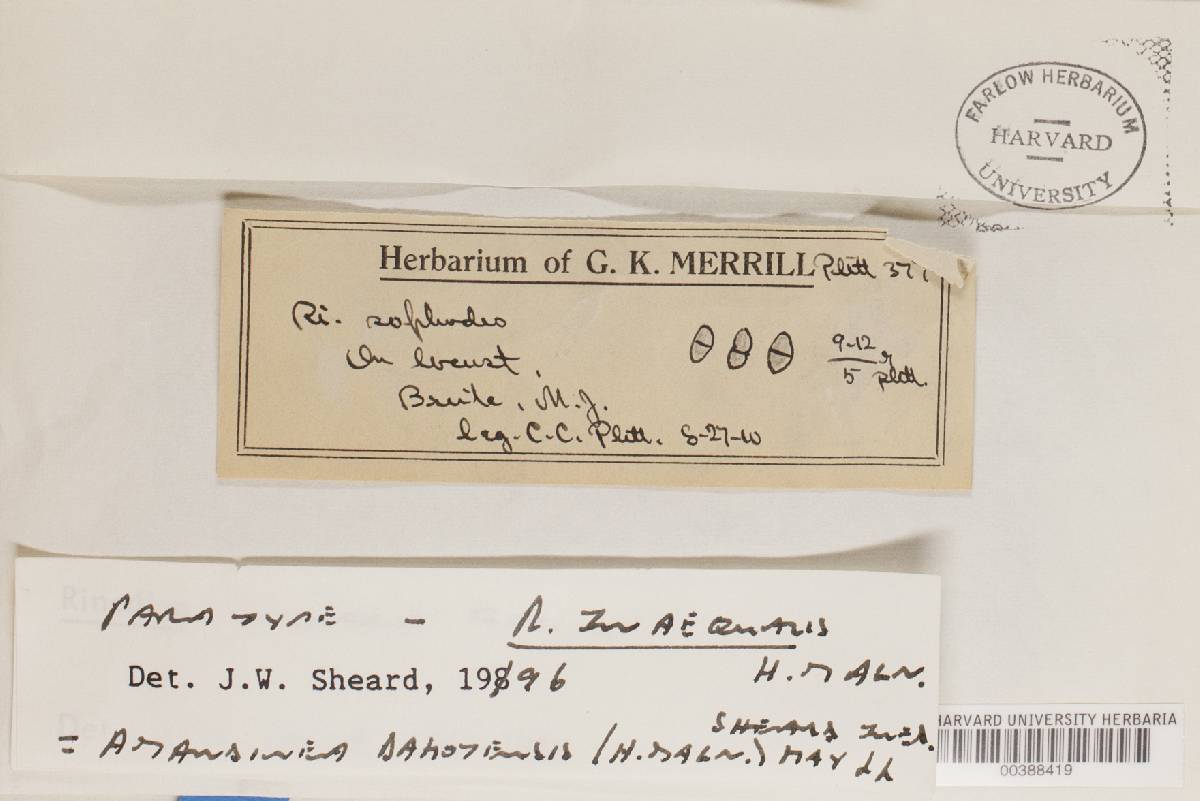 FARLOW HERBARIUM
HARVARD
UNIVERSITY
Herbarium of G. K. MERRILL Plitt 377
Ri. sophodes
On locust,
9-12
5
plitt.
M.J.
leg. C. C. Plitt. 8-27-10
PARATYPE - R. INAEQUALIS
H. MAGN.
Det. J.W. Sheard, 1996
SHEARD INED.
= AMANDINEA DAKOTENSIS (H. MAGN.) MAY &
HARVARD UNIVERSITY HERBARIA
00388419